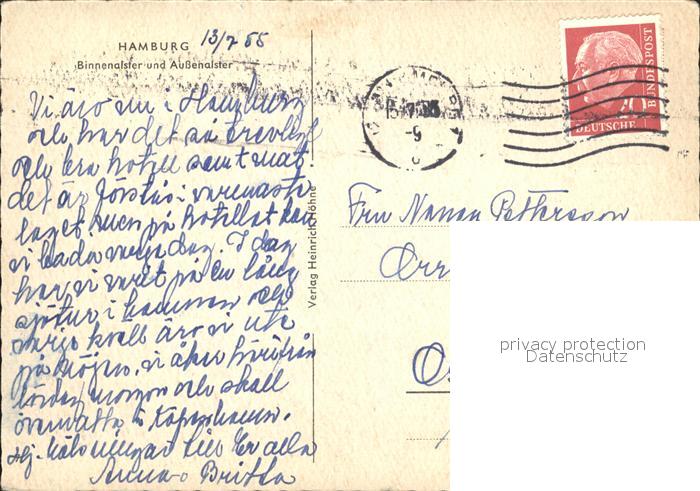 HAMBURG 13/7 55
Binnenalster und Außenalster
Vi äro nu i Hamburg
och har det så trevligt
och bra hotell samt mat.
det är förstås i varmaste
laget. men på hotellet kan
vi bada varje dag. I dag
har vi varit på en lång
sjötur i hamnen och
varje kväll äro vi ute
på nöjen. vi åker härifrån
lördag morgon och skall
övernatta i Köpenhamn.
Hej. hälsningar till Er alla
Anna-Britta
Verlag Heinrich Höhne
20
DEUTSCHE
BUNDESPOST
Fru Nanna Pettersson
privacy protection
Datenschutz